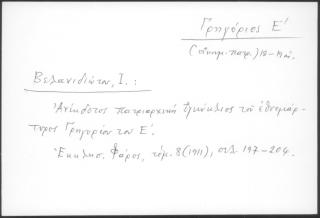 Γρηγόριος Ε'
(οἰκουμ. πατρ.) 18-19 αἰ.
Βελανιδιώτου, Ι. :
Ἀνέκδοτος πατριαρχική ἐγκύκλιος τοῦ ἐθνομάρ-
τυρος Γρηγορίου του Ε'.
Ἐκκλησ. Φάρος, τόμ. 8 (1911), σελ. 197-204.